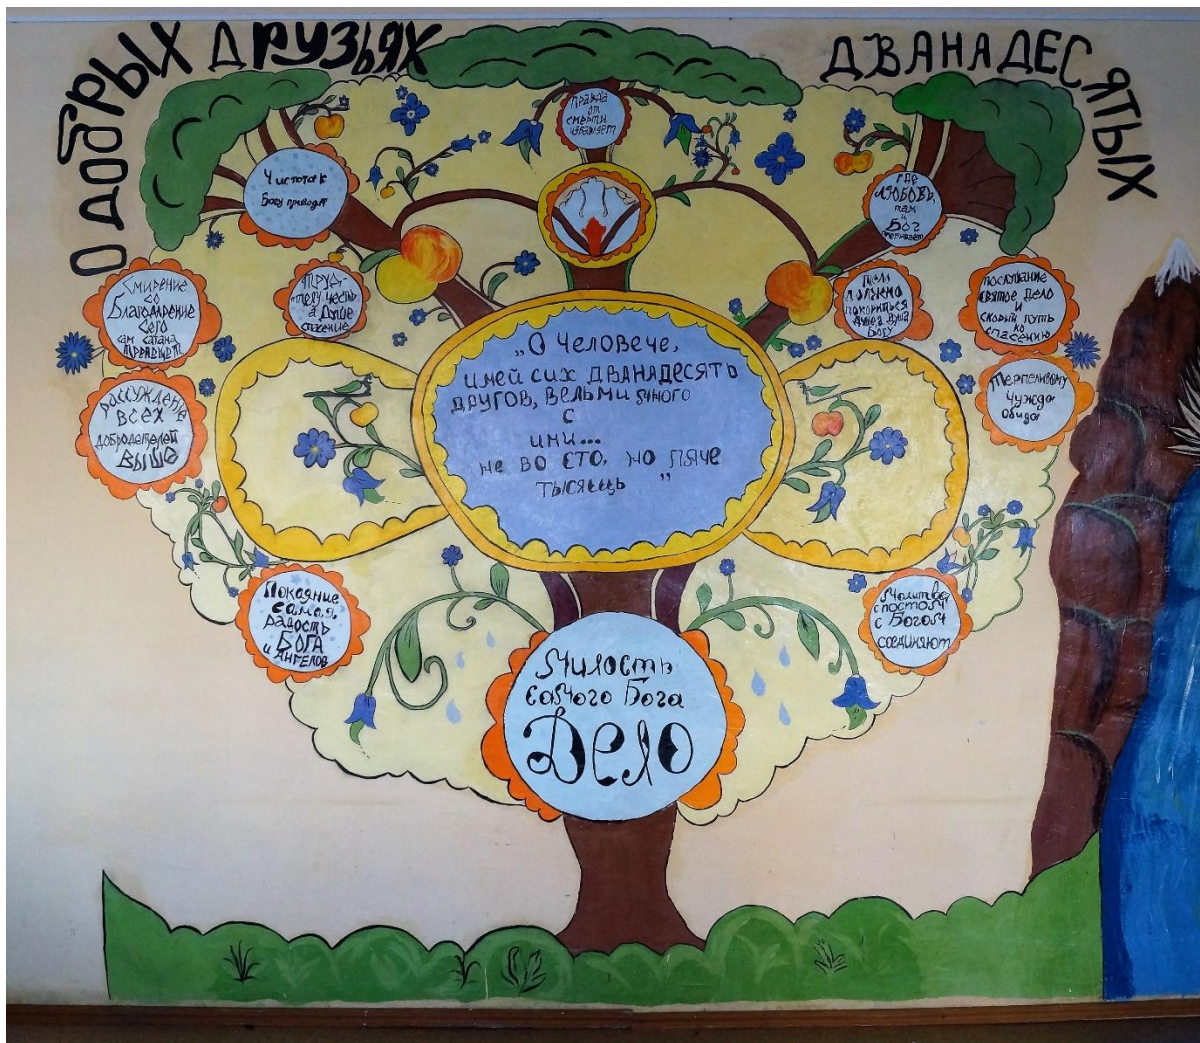 О ДОБРЫХ ДРУЗЬЯХ
ДВАНАДЕСЯТЫХ
Правда
от
смерти
избавляет
Чистота к
Богу приводит
где
ЛЮБОВЬ,
там
и
БОГ
Смирение
со
Благодарение
Сего
сам сатана
трепещет
ТРУД-
телу честь
а Душе
спасение
Телу
должно
покориться
душе а душа
Богу
послушание
святое Дело
и
скорый путь
ко
спасению
рассуждение
всех
добродетелей
выше
Терпеливому
Чужда
обида
„О Человече,
имей сих ДВАНАДЕСЯТЬ
другов, вельми много
с
ими...
не во сто, но паче
тысящь”
Покаяние
самая,
радость
БОГА
и Ангелов
Молитва
с постом
с Богом
соединяют
Милость
самого Бога
Дело